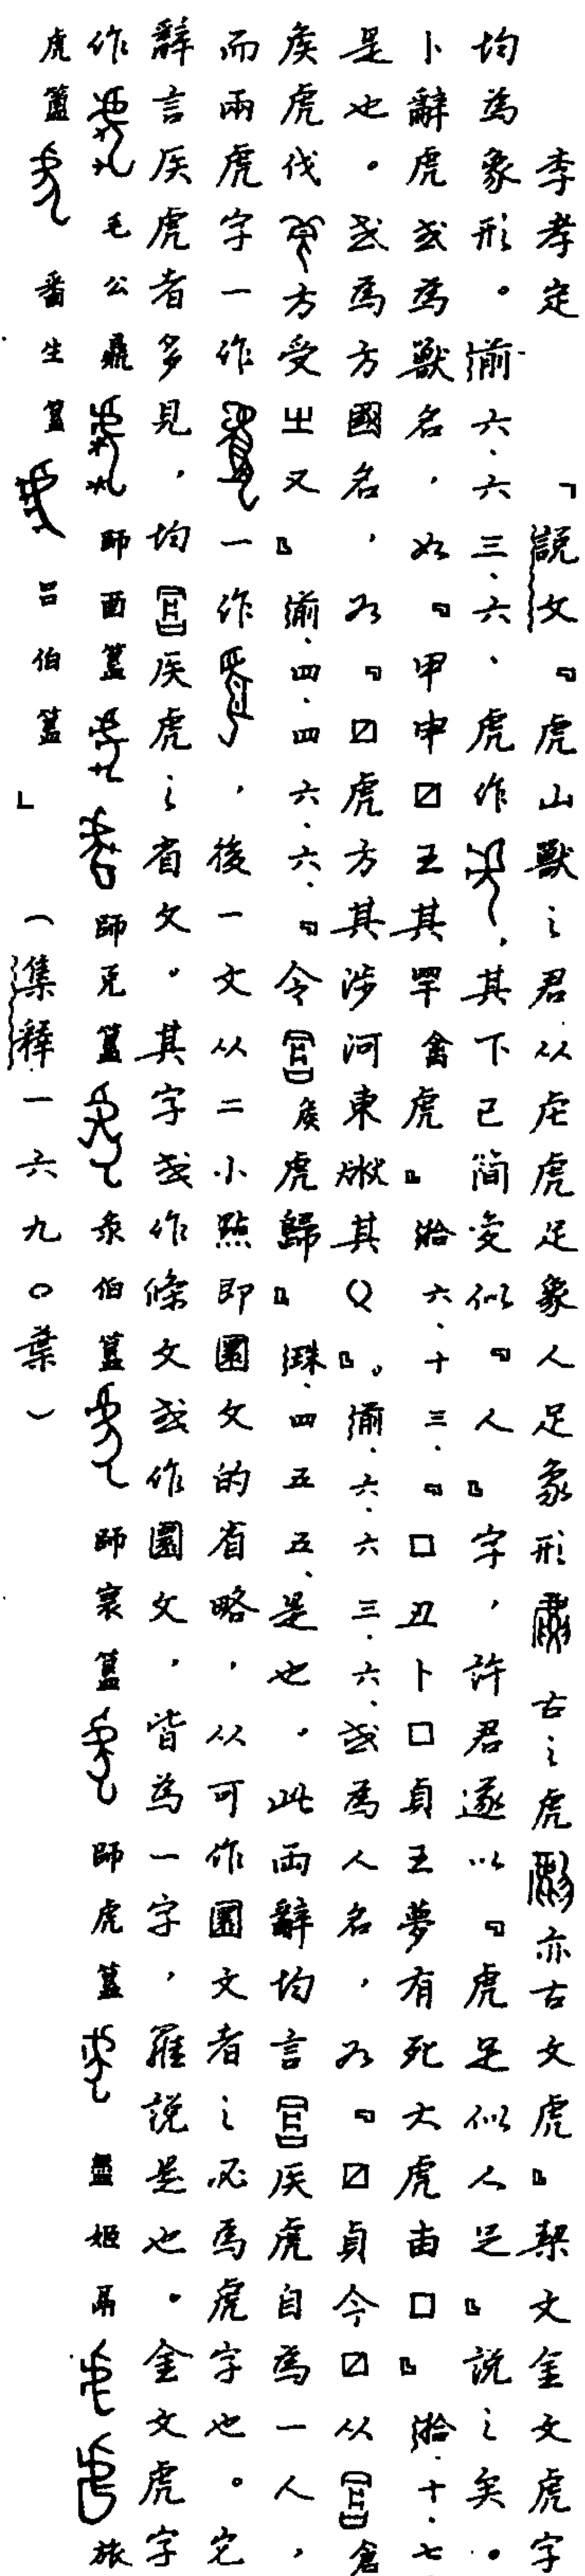 李孝定「說文『虎山獸之君从虍虎足象人足象形 古之虎 亦古文虎』栔文金文虎字
均為象形。湔六、六三、六、虎作 ，其下已簡變似『人』字，許君遂以『虎足似人足』說之矣。
卜辭虎或為獸名，如『甲申☑王其𦋹禽虎』濸六．十三．『□丑卜□貞王夢有死大虎由□』濸．十．七
是也。或為方國名，如『☑虎方其涉河東㳄其 』。湔．六．六三．六、或為人名，如『☑貞今☑从 倉
侯虎伐 方受㞢又』湔．四．四六．六．『令 侯虎歸』㻎．四五五、是也。此兩辭均言 侯虎自為一人，
而兩虎字一作 一作 ，後一文从二小點即圓文的省略，从可作圓文者之必為虎字也。它
辭言侯虎者多見，均 侯虎之省文。其字或作條文或作圓文，皆為一字，羅說是也。金文虎字
作 毛公鼎 師酉簋 師克簋 彔伯簋 師㝨簋 師虎簋 䀇姬鬲 旅
虎簋 番生簋 呂伯簋」（集釋一六九〇葉）